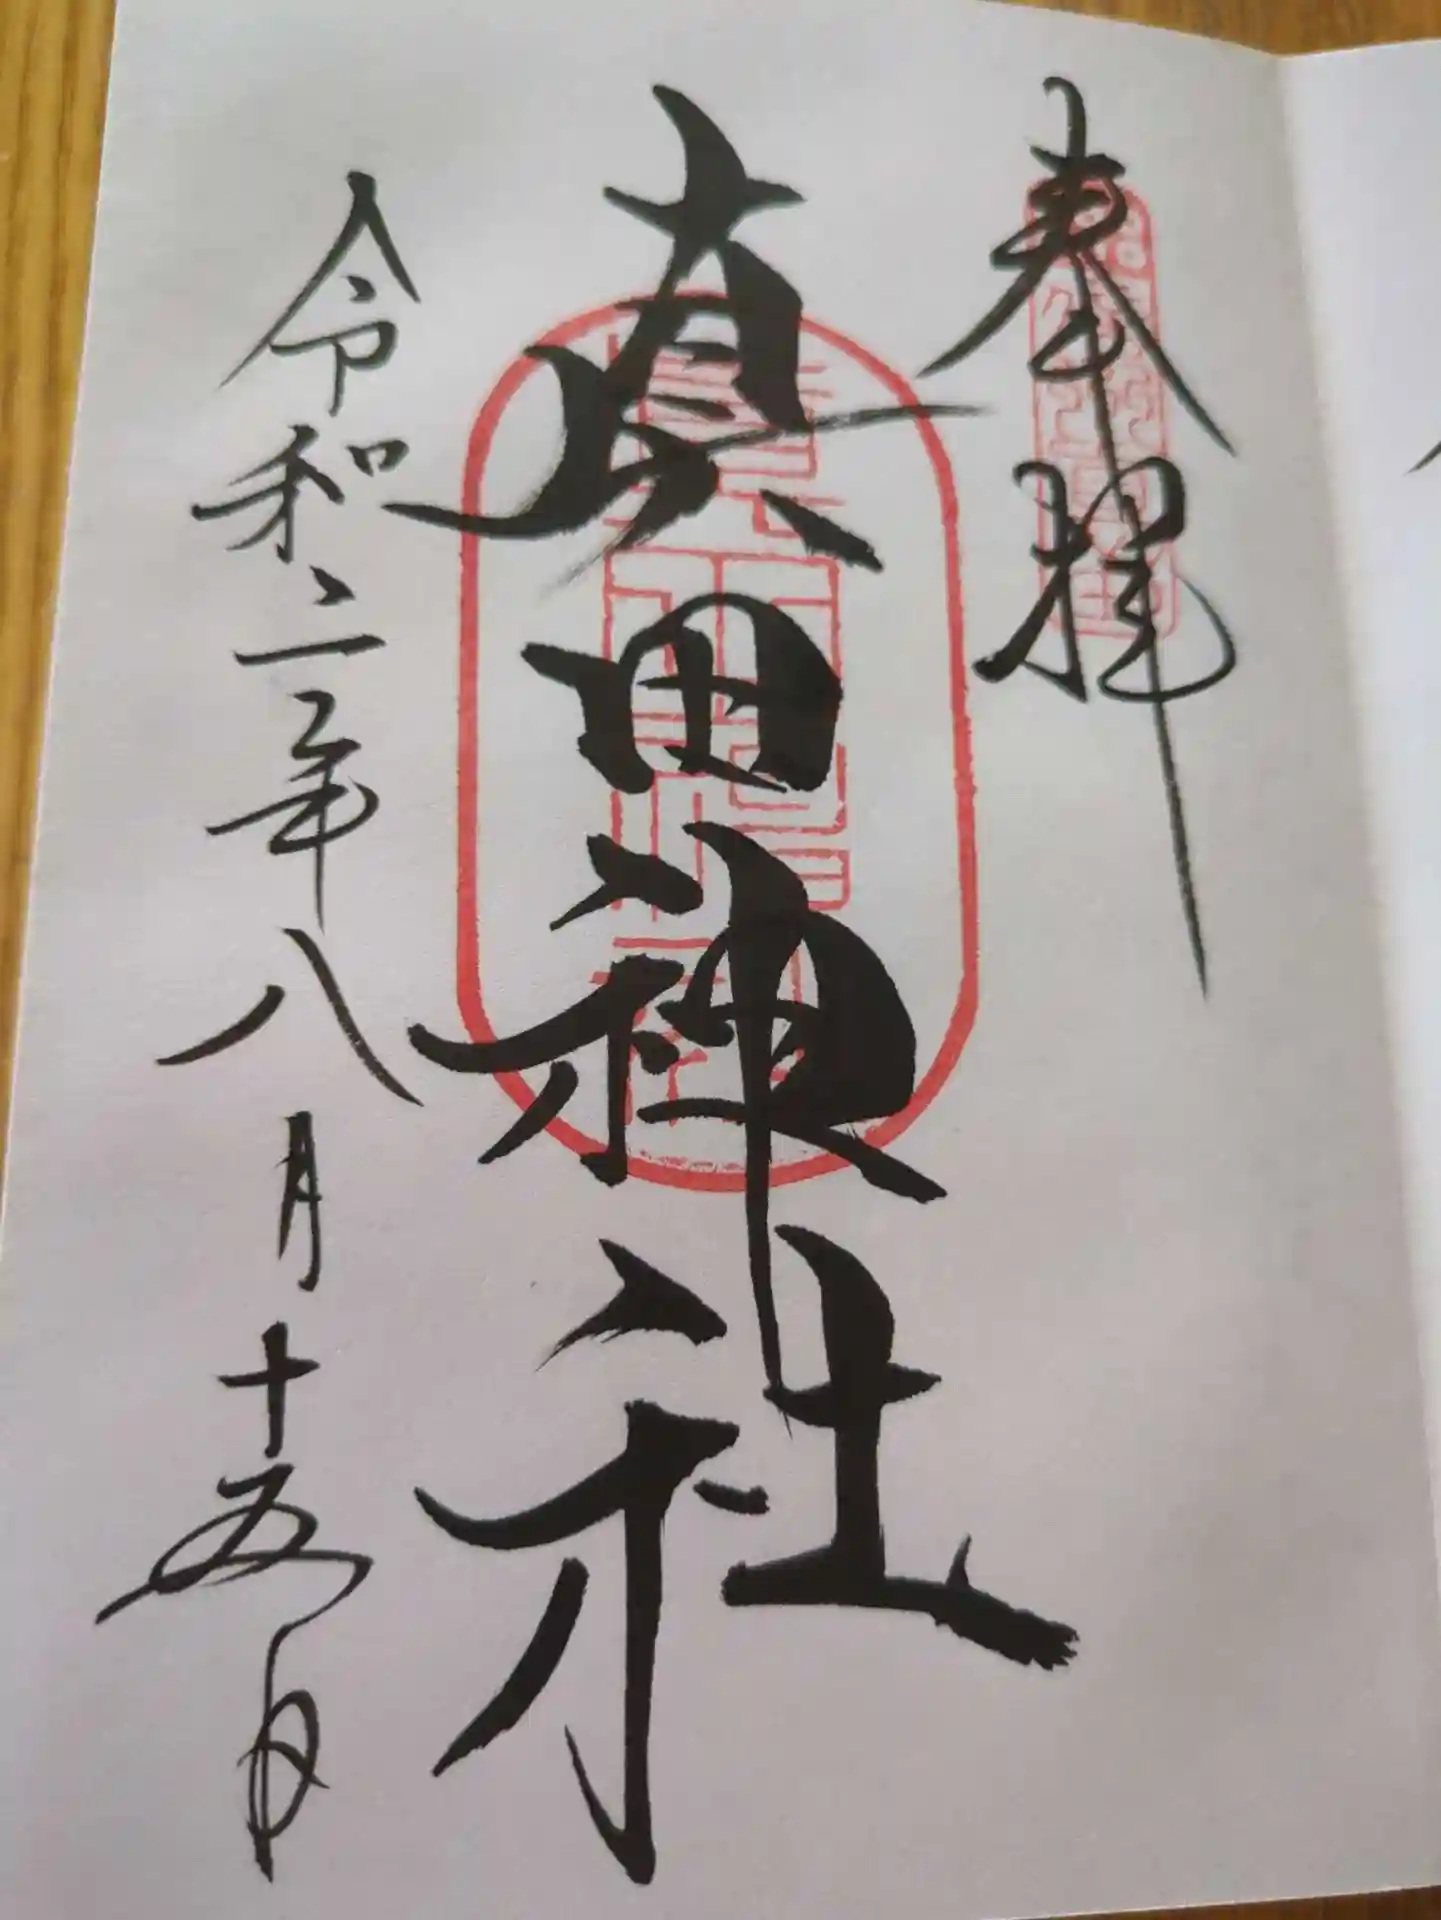 奉拝
眞田神社
令和二年八月十五日